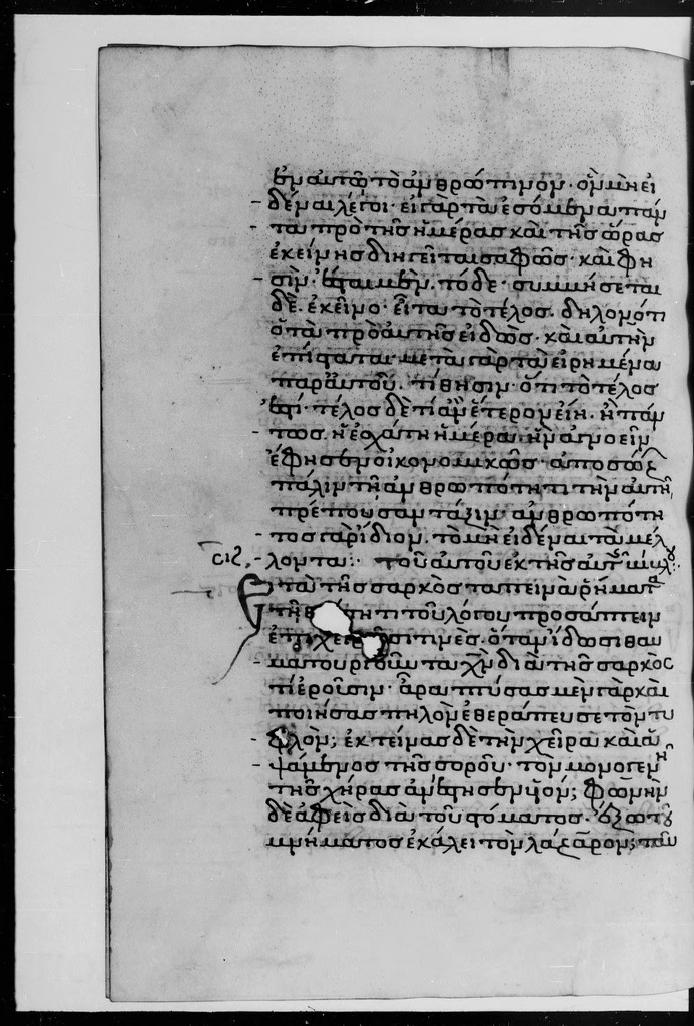 ἐν αὐτῷ τὸ ἀνθρώπινον· οὐ μὴν εἰ
δέναι λέγοι· εἰ γὰρ τὰ ἐσόμενα πάν
τα πρὸ τῆς ἡμέρας καὶ τῆς ὥρας
ἐκείνης διηγεῖται σαφῶς· καὶ φη
σὶν· ἔσται μὲν τόδε· συμβήσεται
δὲ ἐκεῖνο· εἶτα τὸ τέλος. δηλονότι
ὁ τὰ πρὸ αὐτῆς εἰδὼς· καὶ αὐτὴν
ἐπίσταται· μετὰ γὰρ τὰ εἰρημένα
παρ αὐτοῦ. τίθησιν· ὅτι τὸ τέλος
ἐστί· τέλος δὲ τί ἂν ἕτερον εἴη. ἢ πάν
τως ἡ ἐσχάτη ἡμέρα· ἣν ἀγνοεῖν
ἔφησεν οἰκονομικῶς· ἀποσώζ
πάλιν τῇ ἀνθρωπότητι τὴν αὐτῇ
πρέπουσαν τάξιν· ἀνθρωπότη
τος γὰρ ἴδιον. τὸ μὴ εἰδέναι τὰ μέλ
λοντα: τοῦ αὐτοῦ ἐκ τῆς αὐτ
τὰ τῆς σαρκὸς ταπεινὰ ῥήματ
τῇ τητι τοῦ λόγου προσάπτειν
τινὲς. ὅταν ἴδωσι θαυ
ματουργοῦντα χν διὰ τῆς σαρκὸς
τί ἐροῦσιν· ἆρα πτύσας μὲν γὰρ καὶ
ποιήσας πηλὸν ἐθεράπευσε τὸν τυ
φλὸν; ἐκτείνας δὲ τὴν χεῖρα καὶ ἁ
ψάμενος τῆς σοροῦ· τὸν μονογενῆ
τῆς χήρας ἀνέστησεν υἱόν; φωνὴν
δὲ ἀφεὶς διὰ τοῦ στόματος. ἔξω τοῦ
μνήματος ἐκάλει τὸν λάζαρον;